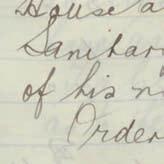 House a
Sanitar
of his n
Order